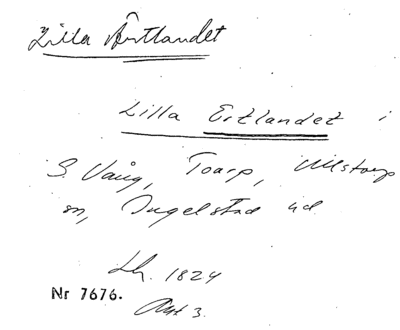 Lilla Ärtlandet
Lilla Ertlandet i
S. Vång, Toarp, Ullstorp
sn, Ingelstad hd
Lh. 1824
Nr 7676.
Akt 3.